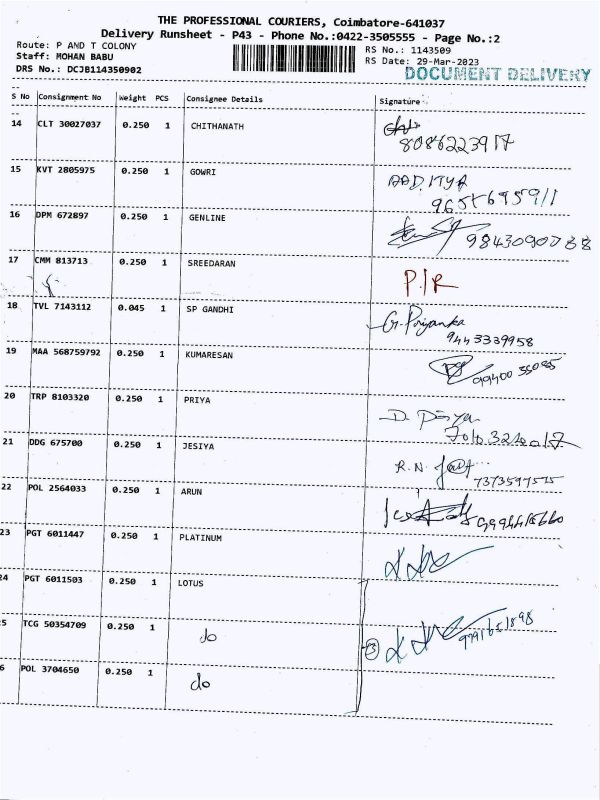 THE PROFESSIONAL COURIERS, Coimbatore-641037
Delivery Runsheet - P43 - Phone No.:0422-3505555 - Page No.:2
Route: P AND T COLONY
Staff: MOHAN BABU
DRS No.: DCJB114350902
RS No.: 1143509
RS Date: 29-Mar-2023
DOCUMENT DELIVERY
S No Consignment No Weight PCS Consignee Details Signature
14 CLT 30027037 0.250 1 CHITHANATH
8086223917
15 KVT 2805975 0.250 1 GOWRI AADITYA
9655695911
16 DPM 672897 0.250 1 GENLINE
17 CMM 813713 0.250 1 SREEDARAN P/R
18 TVL 7143112 0.045 1 SP GANDHI G. Priyanka
9443339958
19 MAA 568759792 0.250 1 KUMARESAN
20 TRP 8103320 0.250 1 PRIYA D. Priya
21 DDG 675700 0.250 1 JESIYA R.N.
22 POL 2564033 0.250 1 ARUN
23 PGT 6011447 0.250 1 PLATINUM
24 PGT 6011503 0.250 1 LOTUS
5 TCG 50354709 0.250 1 do 3
6 POL 3704650 0.250 1 do